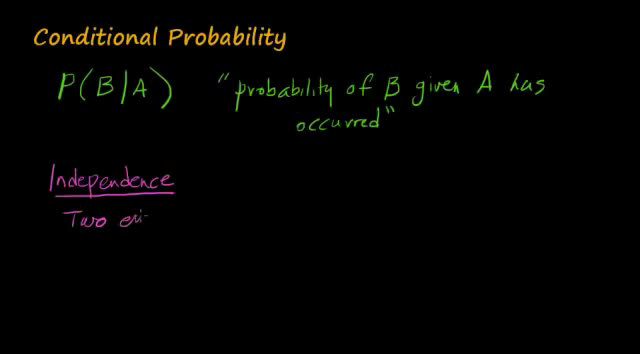 Conditional Probability
P(B/A) "probability of B given A has
occurred"
Independence
Two